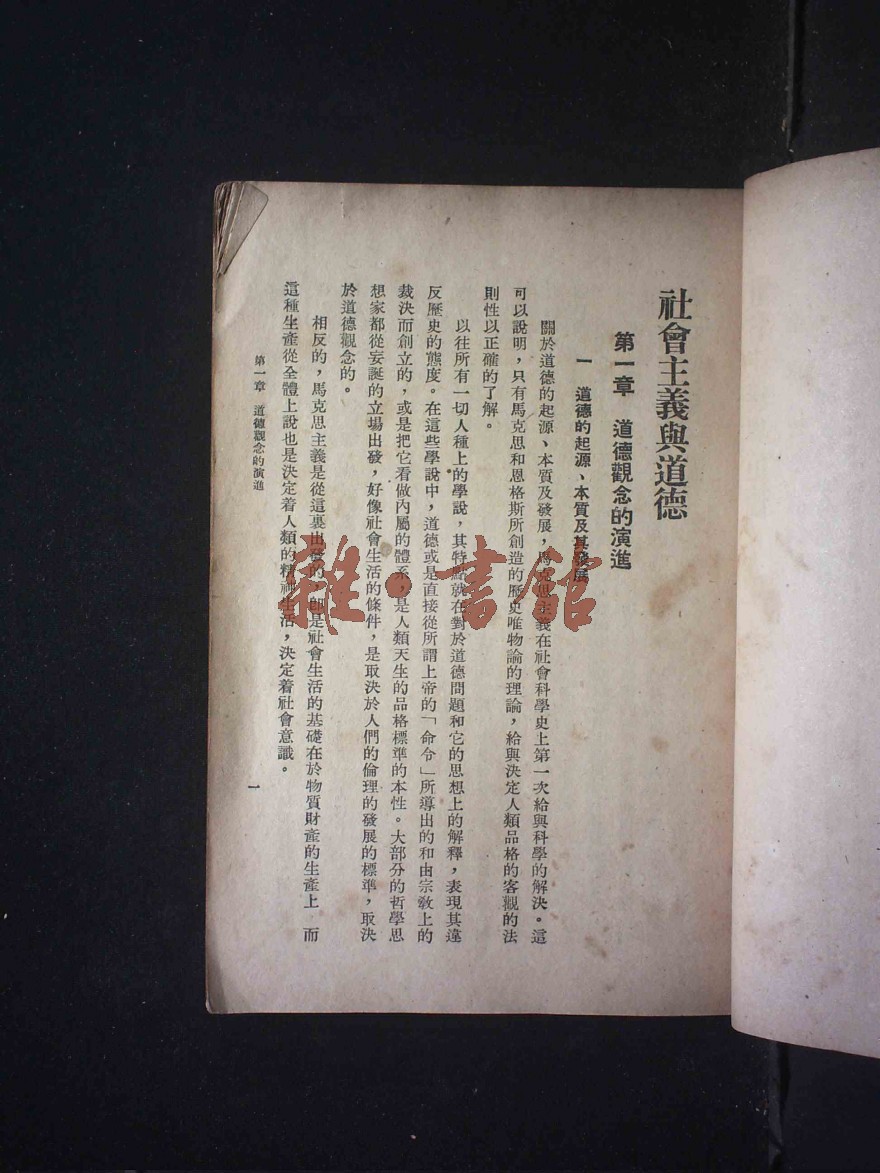 社會主義與道德
第一章 道德觀念的演進
一 道德的起源、本質及其發展
關於道德的起源、本質及發展，馬克思主義在社會科學史上第一次給與科學的解決。這
可以說明，只有馬克思和恩格斯所創造的歷史唯物論的理論，給與決定人類品格的客觀的法
則性以正確的了解。
以往所有一切人種上的學說，其特點就在對於道德問題和它的思想上的解釋，表現其違
反歷史的態度。在這些學說中，道德或是直接從所謂上帝的「命令」所導出的和由宗教上的
裁決而創立的，或是把它看做內屬的體系，是人類天生的品格標準的本性。大部分的哲學思
想家都從妄誕的立場出發，好像社會生活的條件，是取決於人們的倫理的發展的標準，取決
於道德觀念的。
相反的，馬克思主義是從這裏出發的，即是社會生活的基礎在於物質財產的生產上 而
這種生產從全體上說也是決定着人類的精神生活，決定着社會意識。
第一章 道德觀念的演進
一
雜·書館